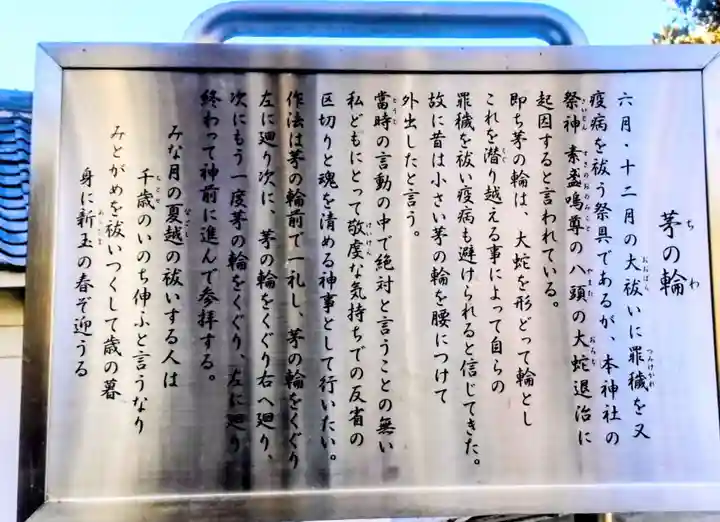 茅の輪
六月・十二月の大祓いに罪穢を又
疫病を祓う祭具であるが、本神社の
祭神 素盛鳴尊の八頭の大蛇退治に
起因すると言われている。
即ち茅の輪は、大蛇を形どって輪とし
これを潜り越える事によって自らの
罪穢を祓い疫病も避けられると信じてきた。
故に昔は小さい茅の輪を腰につけて
外出したと言う。
當時の言動の中で絶対と言うことの無い
私どもにとって敬虔な気持ちでの反省の
区切りと魂を清める神事として行いたい。
作法は茅の輪前で一礼し、茅の輪をくぐり
左に廻り次に、茅の輪をくぐり右へ廻り、
次にもう一度茅の輪をくぐり、左に廻り
終わって神前に進んで参拝する。
みな月の夏越の祓いする人は
千歳のいのち伸ふと言うなり
みとがめを祓いつくして歳の暮
身に新玉の春ぞ迎うる